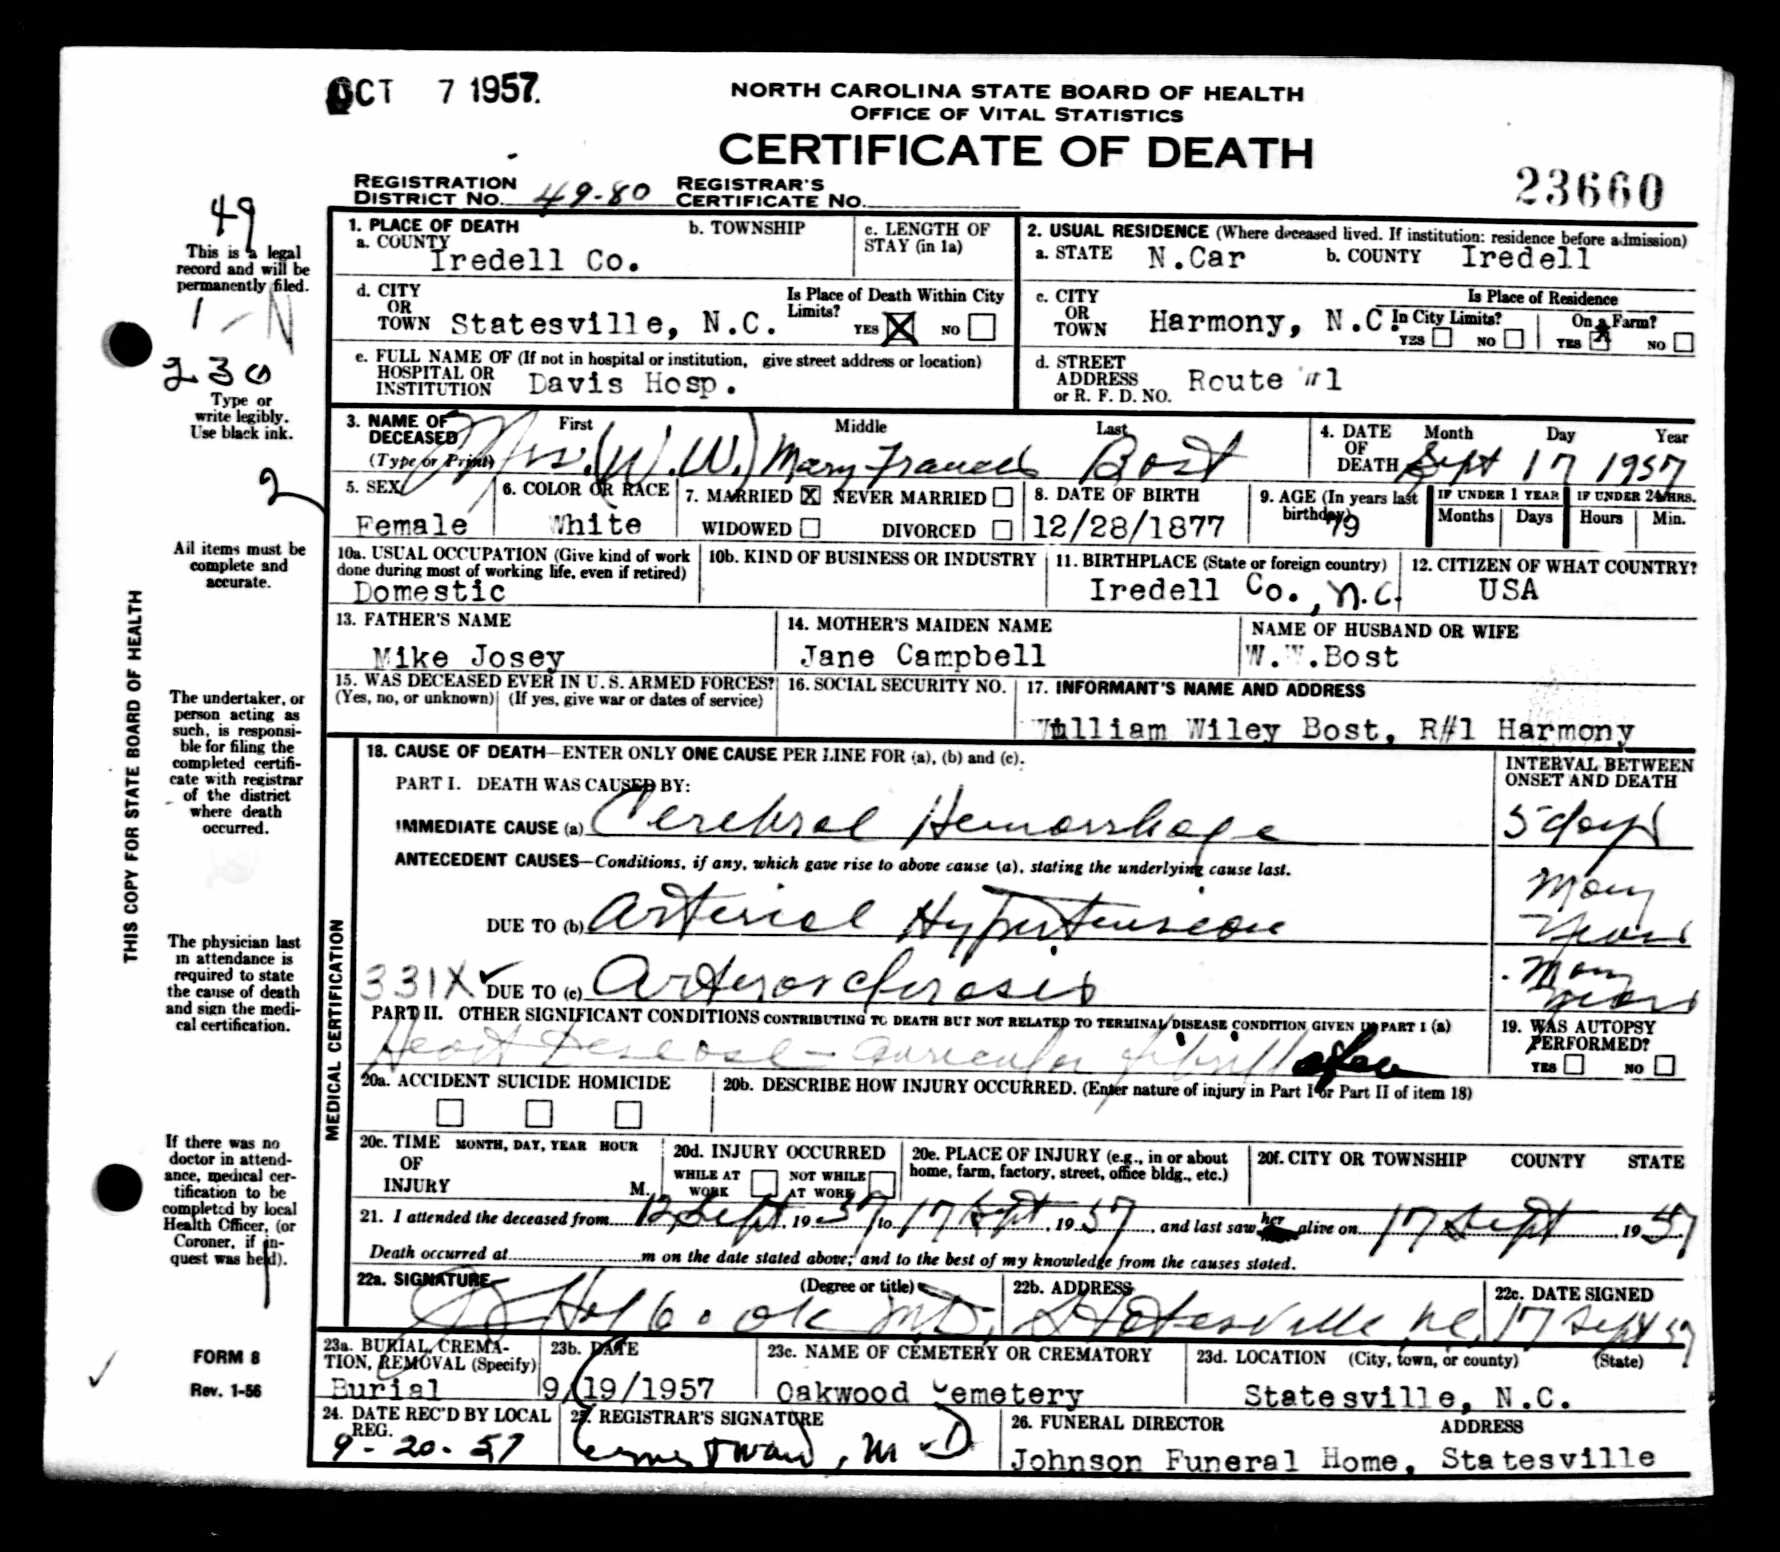 OCT 7 1957.
NORTH CAROLINA STATE BOARD OF HEALTH
OFFICE OF VITAL STATISTICS
CERTIFICATE OF DEATH
23660
REGISTRATION DISTRICT NO. 49-80 REGISTRAR'S CERTIFICATE NO.
49
This is a legal
record and will be
permanently filed.
1 - N
230
Type or
write legibly.
Use black ink.
2
All items must be
complete and
accurate.
THIS COPY FOR STATE BOARD OF HEALTH
The undertaker, or
person acting as
such, is responsi-
ble for filing the
completed certifi-
cate with registrar
of the district
where death
occurred.
The physician last
in attendance is
required to state
the cause of death
and sign the medi-
cal certification.
If there was no
doctor in attend-
ance, medical cer-
tification to be
completed by local
Health Officer, (or
Coroner, if in-
quest was held).
FORM 8
Rev. 1-56
1. PLACE OF DEATH
a. COUNTY Iredell Co.
b. TOWNSHIP
c. LENGTH OF STAY (in 1a)
2. USUAL RESIDENCE (Where deceased lived. If institution: residence before admission)
a. STATE N.Car b. COUNTY Iredell
d. CITY OR TOWN Statesville, N.C.
Is Place of Death Within City Limits? YES X NO
c. CITY OR TOWN Harmony, N.C.
Is Place of Residence
In City Limits? YES NO
On a Farm? YES X NO
e. FULL NAME OF (If not in hospital or institution, give street address or location)
HOSPITAL OR INSTITUTION Davis Hosp.
d. STREET ADDRESS or R. F. D. NO. Route #1
3. NAME OF DECEASED (Type or Print)
First Middle Last
Mrs. (W.W.) Mary Frances Bost
4. DATE OF DEATH Month Day Year
Sept 17 1957
5. SEX Female
6. COLOR OR RACE White
7. MARRIED X NEVER MARRIED
WIDOWED DIVORCED
8. DATE OF BIRTH 12/28/1877
9. AGE (In years last birthday) 79
IF UNDER 1 YEAR Months Days
IF UNDER 24 HRS. Hours Min.
10a. USUAL OCCUPATION (Give kind of work done during most of working life, even if retired)
Domestic
10b. KIND OF BUSINESS OR INDUSTRY
11. BIRTHPLACE (State or foreign country)
Iredell Co., N.C.
12. CITIZEN OF WHAT COUNTRY?
USA
13. FATHER'S NAME
Mike Josey
14. MOTHER'S MAIDEN NAME
Jane Campbell
NAME OF HUSBAND OR WIFE
W.W.Bost
15. WAS DECEASED EVER IN U. S. ARMED FORCES?
(Yes, no, or unknown) (If yes, give war or dates of service)
16. SOCIAL SECURITY NO.
17. INFORMANT'S NAME AND ADDRESS
William Wiley Bost, R#1 Harmony
MEDICAL CERTIFICATION
18. CAUSE OF DEATH—ENTER ONLY ONE CAUSE PER LINE FOR (a), (b) and (c).
INTERVAL BETWEEN ONSET AND DEATH
PART I. DEATH WAS CAUSED BY:
IMMEDIATE CAUSE (a) Cerebral Hemorrhage 5 days
ANTECEDENT CAUSES—Conditions, if any, which gave rise to above cause (a), stating the underlying cause last.
DUE TO (b) Arterial Hypertension Many Years
331X ✓ DUE TO (c) Arterosclerosis Many Years
PART II. OTHER SIGNIFICANT CONDITIONS CONTRIBUTING TO DEATH BUT NOT RELATED TO TERMINAL DISEASE CONDITION GIVEN IN PART I (a)
Heart Disease - auricular fibrillation
19. WAS AUTOPSY PERFORMED?
YES NO
20a. ACCIDENT SUICIDE HOMICIDE
20b. DESCRIBE HOW INJURY OCCURRED. (Enter nature of injury in Part I or Part II of item 18)
20c. TIME OF INJURY MONTH, DAY, YEAR HOUR M.
20d. INJURY OCCURRED
WHILE AT WORK NOT WHILE AT WORK
20e. PLACE OF INJURY (e.g., in or about home, farm, factory, street, office bldg., etc.)
20f. CITY OR TOWNSHIP COUNTY STATE
21. I attended the deceased from 12 Sept, 1957 to 17 Sept, 1957, and last saw her alive on 17 Sept 1957
Death occurred at m on the date stated above; and to the best of my knowledge from the causes stated.
22a. SIGNATURE (Degree or title)
Holbrook M.D.
22b. ADDRESS
Statesville N.C.
22c. DATE SIGNED
17 Sept 57
23a. BURIAL, CREMATION, REMOVAL (Specify)
Burial
23b. DATE
9/19/1957
23c. NAME OF CEMETERY OR CREMATORY
Oakwood Cemetery
23d. LOCATION (City, town, or county) (State)
Statesville, N.C.
24. DATE REC'D BY LOCAL REG.
9-20-57
25. REGISTRAR'S SIGNATURE
Ward, M.D
26. FUNERAL DIRECTOR ADDRESS
Johnson Funeral Home, Statesville